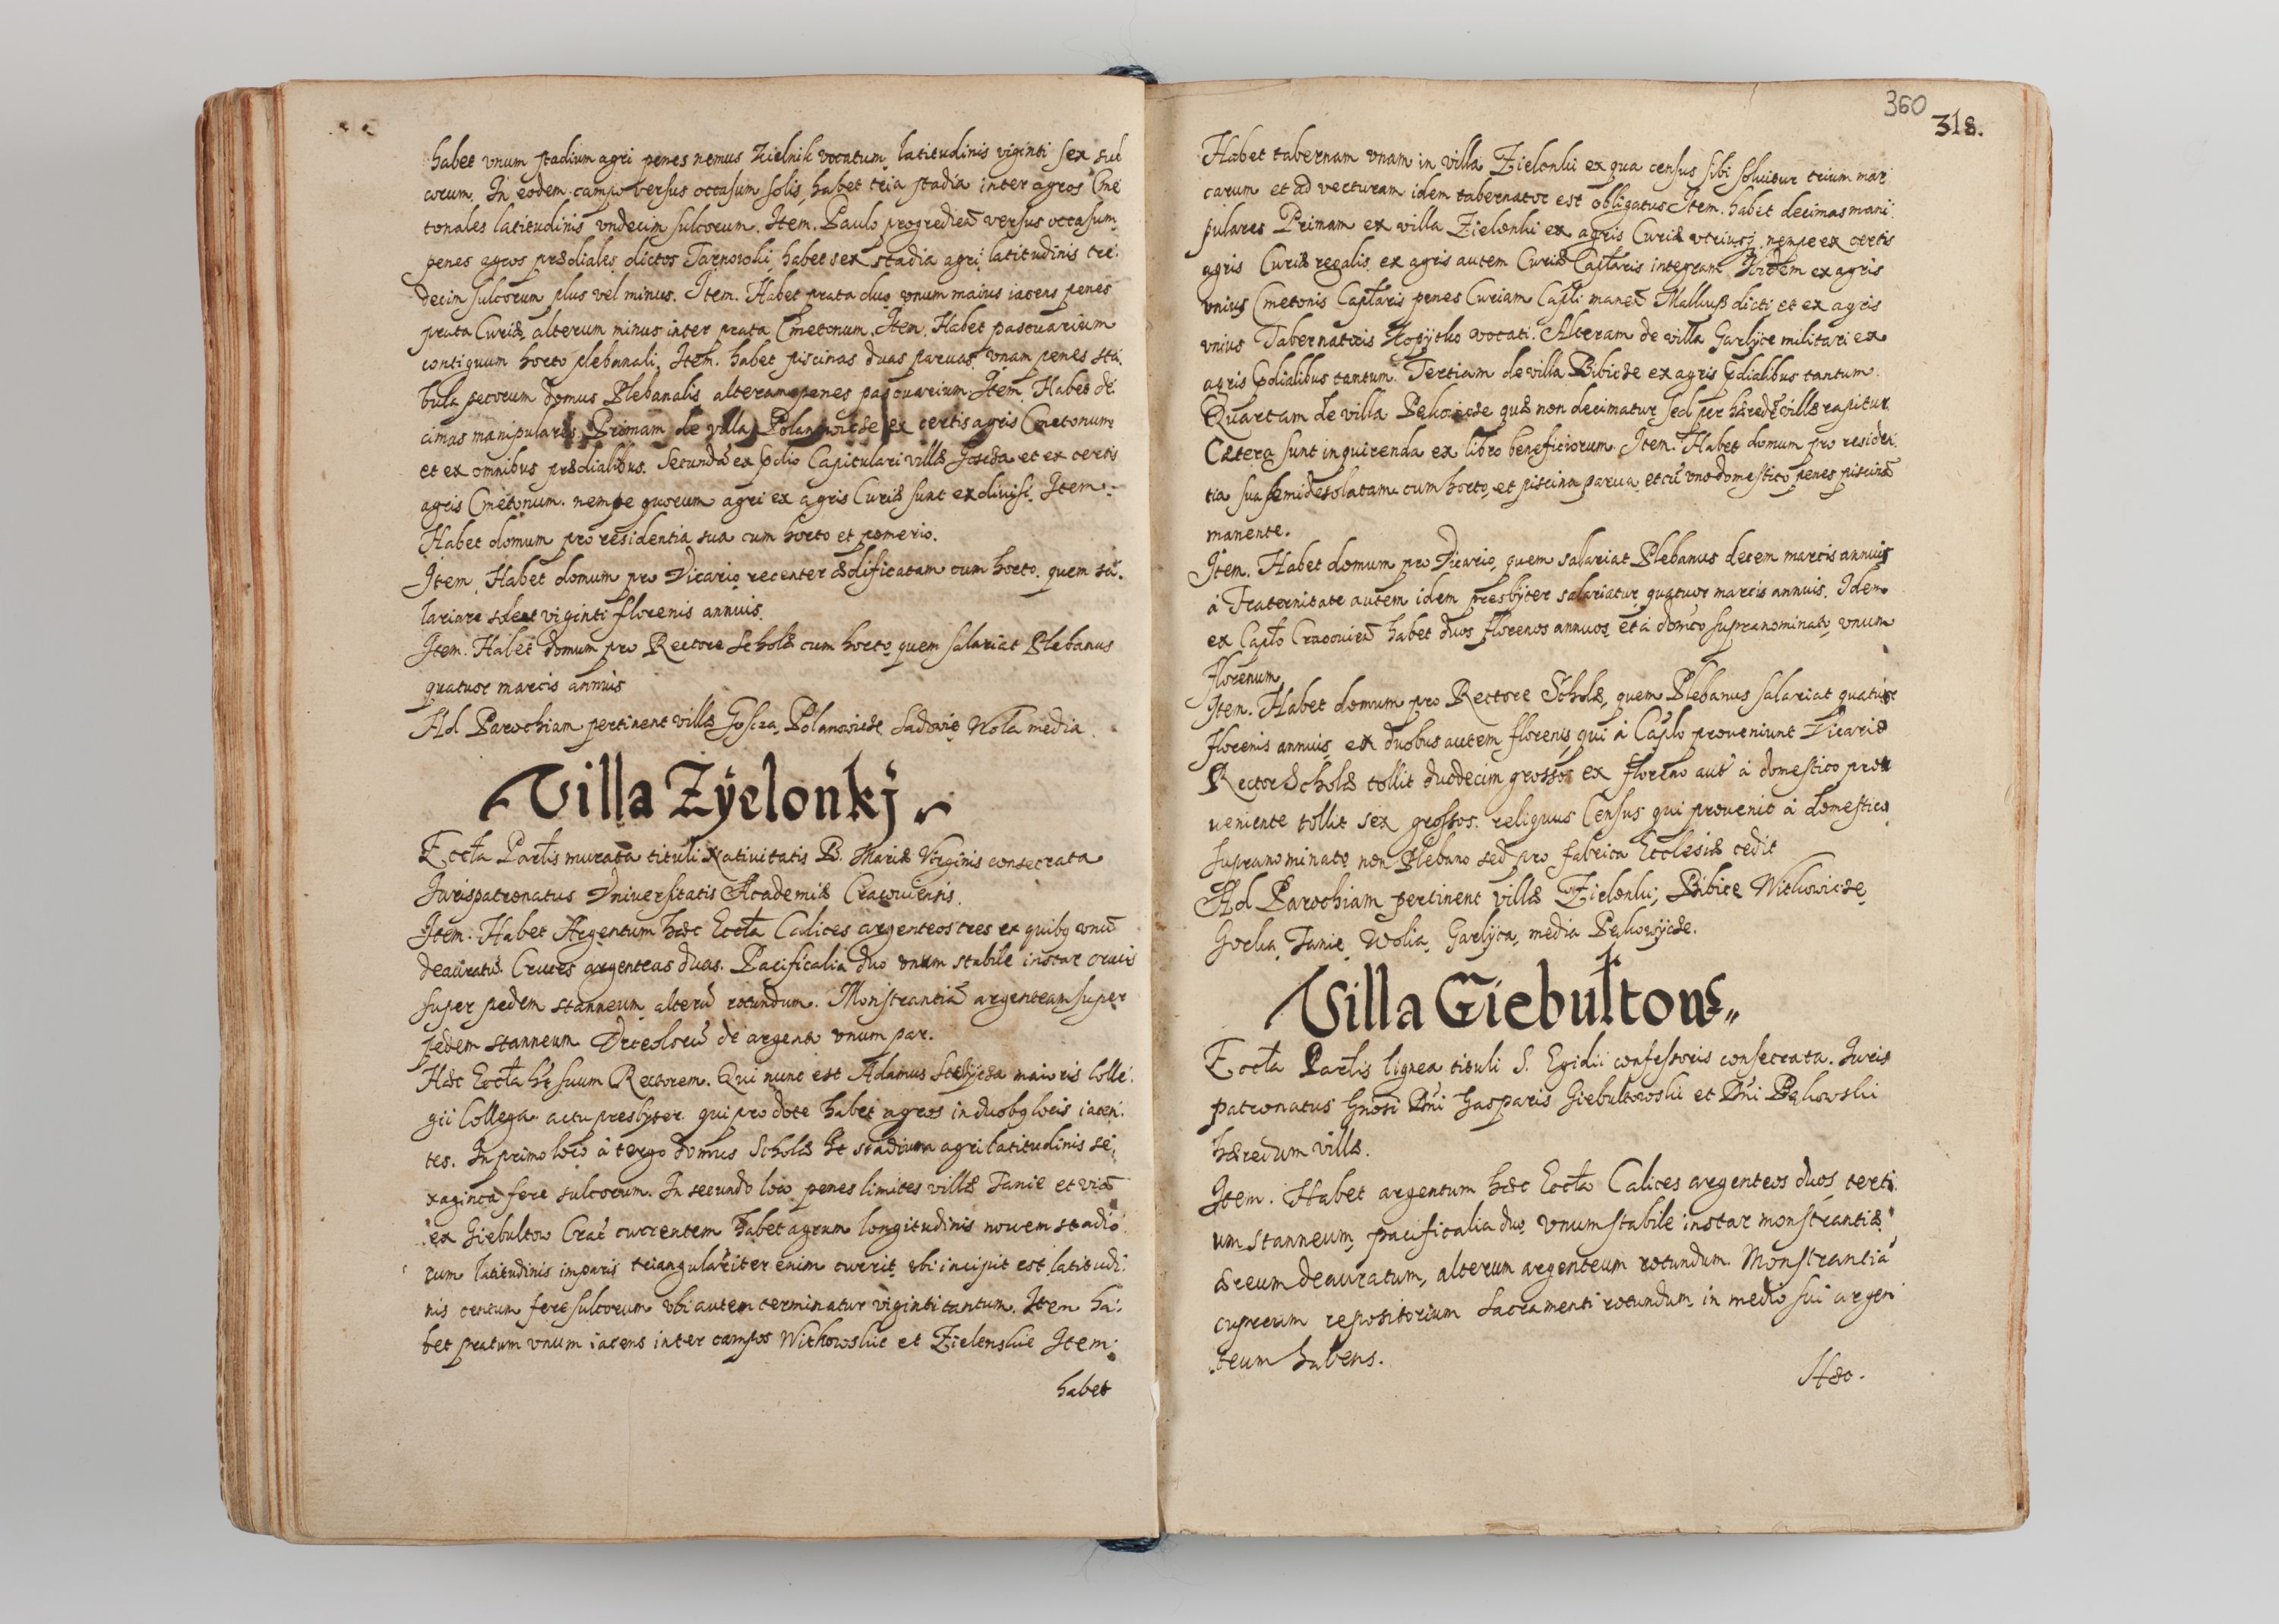 habet vnum stadium agri penes nemus Zielnik vocatum latitudinis viginti sex sul
corum. In eodem campo versus occasum solis, habet tria stadia inter agros Cme
tonales latitudinis vndecim sulcorum. Item. Paulo progrediẽ versus occasum
penes agros prædiales dictos Tarnowski, habet sex stadia agri latitudinis tre:
decim sulcorum plus vel minus. Item. Habet prata duo vnum maius iacens penes
prata Curiæ, alterum minus inter prata Cmetonum. Item. Habet pascuarium
contiguum horto plebanali, Item. habet piscinas duas paruas vnam penes sta
bula pecorum domus Plebanalis alteram penes pascuarium Item. Habet de
cimas manipulares. Primam de villa Polanowicze ex certis agris Cmetonum
et ex omnibus prædialibus. Secundã ex pdio Capitulari villæ Goscza et ex certis
agris Cmetonum. nempe quorum agri ex agris Curiæ sunt exdiuisi. Item
Habet domum pro residentia sua cum horto et pomerio.
Item. Habet domum pro Vicario recenter ædificatam cum horto. quem sa.
lariare solet viginti florenis annuis.
Item. Habet domum pro Rectore Scholæ cum horto quem salariat Plebanus
quatuor marcis annuis
Ad Parochiam pertinent villæ Goscza, Polanowicze Sadowie Wola media
Villa Zÿelonkj
Eccta Partis murata tituli Natiuitatis B. Mariæ Virginis consecrata
Jurispatronatus Vniuersitatis Academiæ Cracouiensis.
Item. Habet Argentum hæc Eccta Calices argenteos tres ex quibȝ vnũ
deauratũ. Cruces argenteas duas. Pacificalia duo vnum stabile instar crucis
super pedem stanneum alterũ rotundum. Monstrantiã argenteam super
pedem stanneum Vrceolorũ de argento vnum par.
Hæc Eccta ht suum Rectorem. Qui nunc est Adamus maioris Colle:
gii Collega actu presbyter. qui pro dote habet agros in duobȝ locis iacen:
tes. In primo loco à tergo domus Scholæ ht stadium agri latitudinis se:
xaginta fere sulcorum. In secundo loco penes limites villæ Tanie et viã
ex Giebultow Crac̃ currentem habet agrum longitudinis nouem stadio
rum latitudinis imparis triangulariter enim currit vbi incipit est latitudi:
nis centum fere sulcorum vbi autem terminatur viginti tantum. Item ha:
bet pratum vnum iacens inter campos Withowskie et Zielenskie Item:
habet
360
318.
Habet tabernam vnam in villa Zielonki ex qua census sibi soluitur trium mar
carum et ad vecturam idem tabernator est obligatus Item. habet decimas mani
pulares Primam ex villa Zielonki ex agris Curiæ vtriusqȝ nempe ex certis
agris Curiæ regalis ex agris autem Curiæ Captaris integrant. Itidem ex agris
vnius Cmetonis Captaris penes Curiam Capti manẽ Mallusz dicti et ex agris
vnius Tabernatoris Kopÿtko vocati. Alteram de villa Garlÿce militari ex
agris pdialibus tantum. Tertiam de villa Bibicze ex agris pdialibus tantum.
Quartam de villa Pękowicze quæ non decimatur sed per hæredẽ villæ rapitur.
Cætera sunt inquirenda ex libro beneficiorum Item. Habet domum pro residen
tia sua semidesolatam cum horto et piscina parua et cũ vno domestico penes piscinã
manente.
Item. Habet domum pro Vicario quem salariat Plebanus decem marcis annuis
à Fraternitate autem idem presbyter salariatur quatuor marcis annuis. Idem
ex Capto Cracouieñ habet duos florenos annuos et à domco supranominato vnum
florenum
Item. Habet domum pro Rectore Scholæ, quem Plebanus salariat quatuor
florenis annuis ex duobus autem florenis qui à Capto proueniunt Vicario
Rector Scholæ tollit duodecim grossos ex floreno autẽ à domestico pro
ueniente tollit sex grossos. reliquus Census qui prouenit à domestico
supranominato non Plebano sed pro fabrica Ecclesiæ cedit
Ad Parochiam pertinent villæ Zielonki, Bibice Withowicze
Gorka Tanie Wolia, Garlÿca, media Pękowÿcze.
Villa Giebultow
Eccta Partis lignea tituli S. Egidii confessoris consecrata. Juris
patronatus Gnosi Dni Gasparis Giebultowski et Dni Pękowski
hæredum villæ.
Item. Habet argentum hæc Eccta Calices argenteos duos terti
um stanneum, pacificalia duo vnum stabile instar monstrantiæ
æreum deauratum, alterum argenteum rotundum. Monstrantiã
cupreum repositorium Sacramenti rotundum in medio sui argen
teum habens.
Hæc.